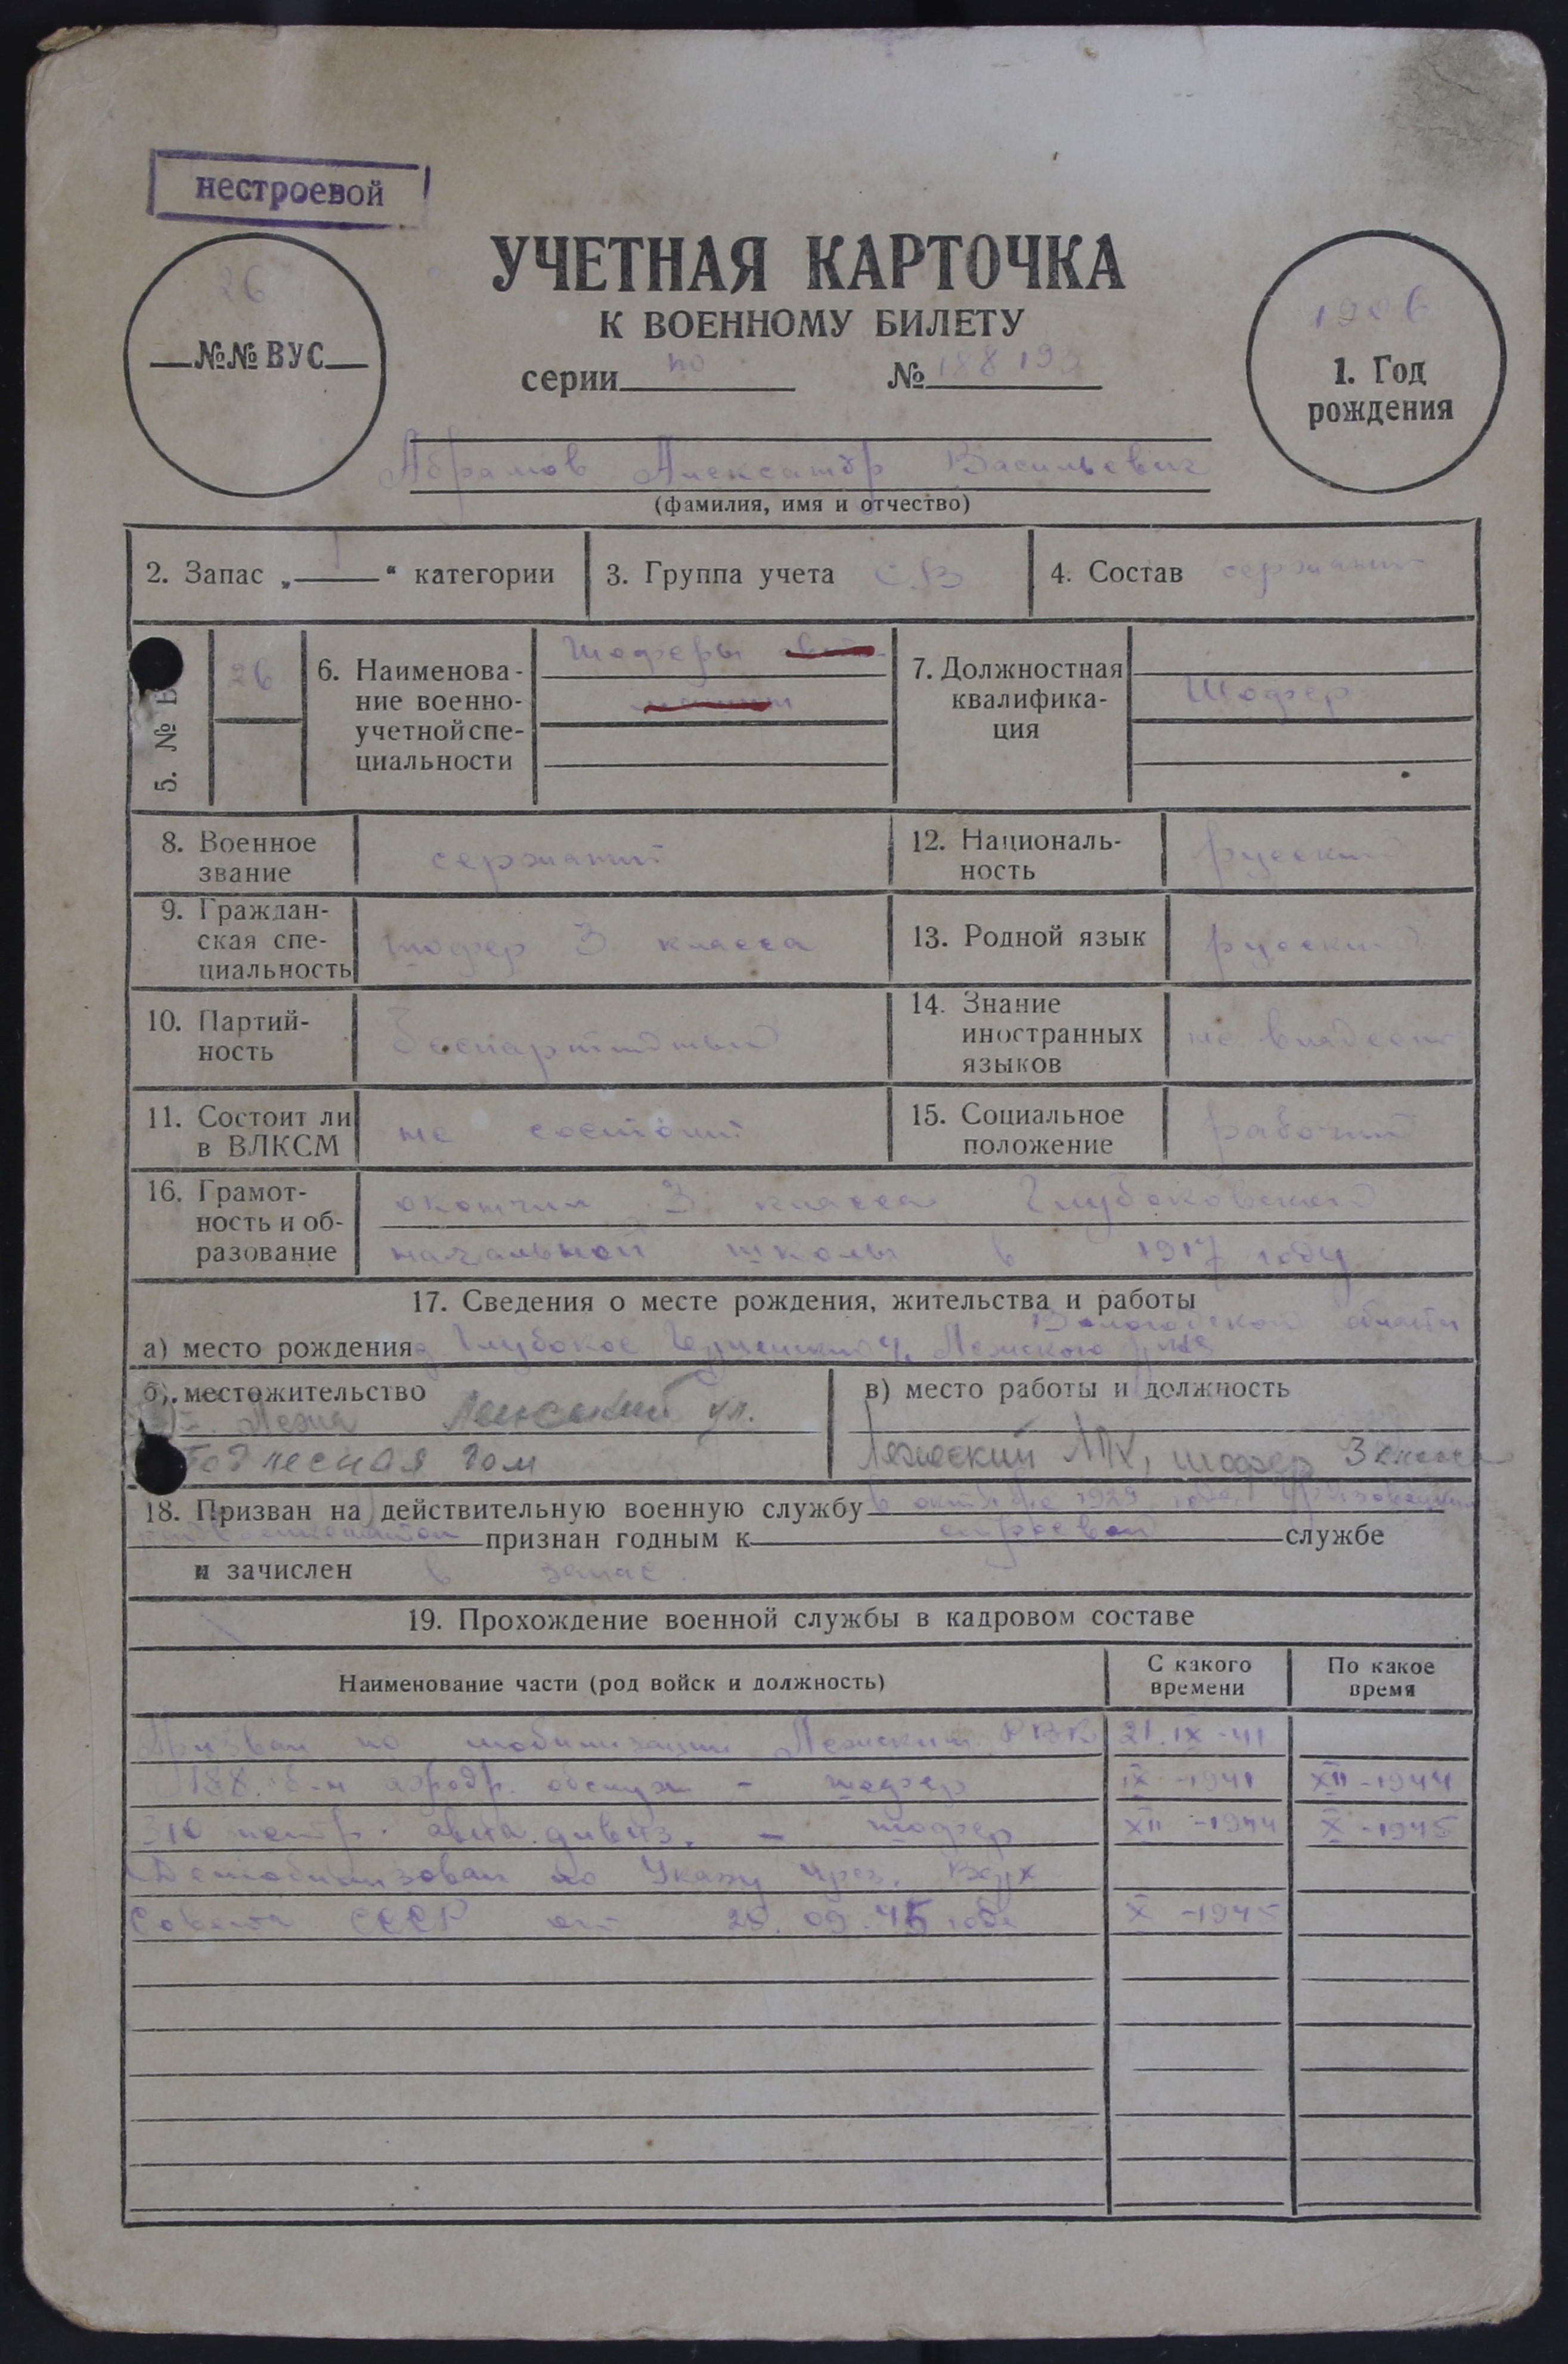 нестроевой
УЧЕТНАЯ КАРТОЧКА
К ВОЕННОМУ БИЛЕТУ
серии по № 188193
26
№№ ВУС
1906
1. Год
рождения
Абрамов Александр Васильевич
(фамилия, имя и отчество)
2. Запас „ I “ категории
3. Группа учета СВ
4. Состав сержант
5. № В
26
6. Наименова-
ние военно-
учетной спе-
циальности
Шоферы
7. Должностная
квалифика-
ция
Шофер
8. Военное
звание
сержант
12. Националь-
ность
русский
9. Граждан-
ская спе-
циальность
шофер 3 класса
13. Родной язык
русский
10. Партий-
ность
беспартийный
14. Знание
иностранных
языков
не владеет
11. Состоит ли
в ВЛКСМ
не состоит
15. Социальное
положение
рабочий
16. Грамот-
ность и об-
разование
окончил 3 класса Глубоковской
начальной школы в 1917 году
17. Сведения о месте рождения, жительства и работы
Вологодской области
а) место рождения д. Глубокое Лежского
б) местожительство
Лежа ул.
дом
в) место работы и должность
Лежский ЛПХ, шофер 3 класса
18. Призван на действительную военную службу в октябре 1929 года
признан годным к строевой службе
и зачислен в запас.
19. Прохождение военной службы в кадровом составе
Наименование части (род войск и должность)
С какого
времени
По какое
время
Призван по мобилизации Лежским РВК 21.IX-41
188. б-н аэродр. обслуж - шофер IX-1941 XII-1944
310 авиа. дивиз. - шофер XII-1944 X-1945
Демобилизован по Указу През. Верх
Совета СССР от 09.45 года X-1945